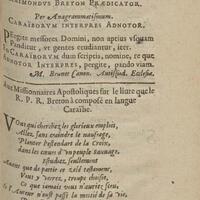 RAIMONDVS BRETON PRÆDICATOR.
Per Anagrammatismum.
CARAÏBORVM INTERPRES ADNOTOR.
Pergite messores Domini, non aptius vsquam
Panditur, vt gentes erudiantur, iter.
In CARAÏBORVM dum scriptis, nomine, re que
ADNOTOR INTERPRES, pergite, pando viam.
M. Brunet Canon. Autissiod. Ecclesiæ.
Aux Missionnaires Apostoliques sur le liure que le
R. P. R. Breton à composé en langue
Caraïbe.
Vous qui cherchez les glorieux emplois,
Allez, sans craindre le naufrage,
Planter l'estendart de la Croix,
dans les cœurs d'un peuple sauuage.
Autant que de patrie et zelé
Vous y verrez, troupe choisie,
Ce que iamais vous n'auriez sceu,
Si l'Auteur n'eust passé la moitié de sa vie,